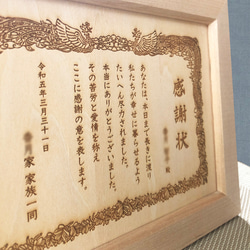 感謝状
様
あなたは、本日まで長きに渡り
私たちが幸せに暮らせるよう
たいへん尽力されました。
本当にありがとうございました。
その苦労と愛情を称え
ここに感謝の意を表します。
令和五年三月三十一日
家 家族一同